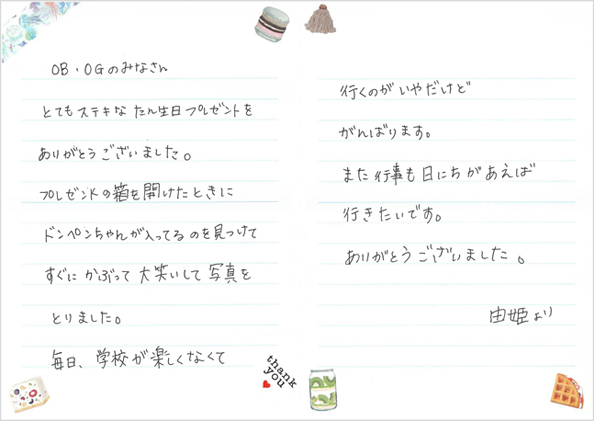 OB・OGのみなさん
とてもステキなたん生日プレゼントを
ありがとうございました。
プレゼントの箱を開けたときに
ドンペンちゃんが入ってるのを見つけて
すぐにかぶって大笑いして写真を
とりました。
毎日、学校が楽しくなくて
行くのがいやだけど
がんばります。
また行事も日にちがあえば
行きたいです。
ありがとうございました。
由姫より
thank
you